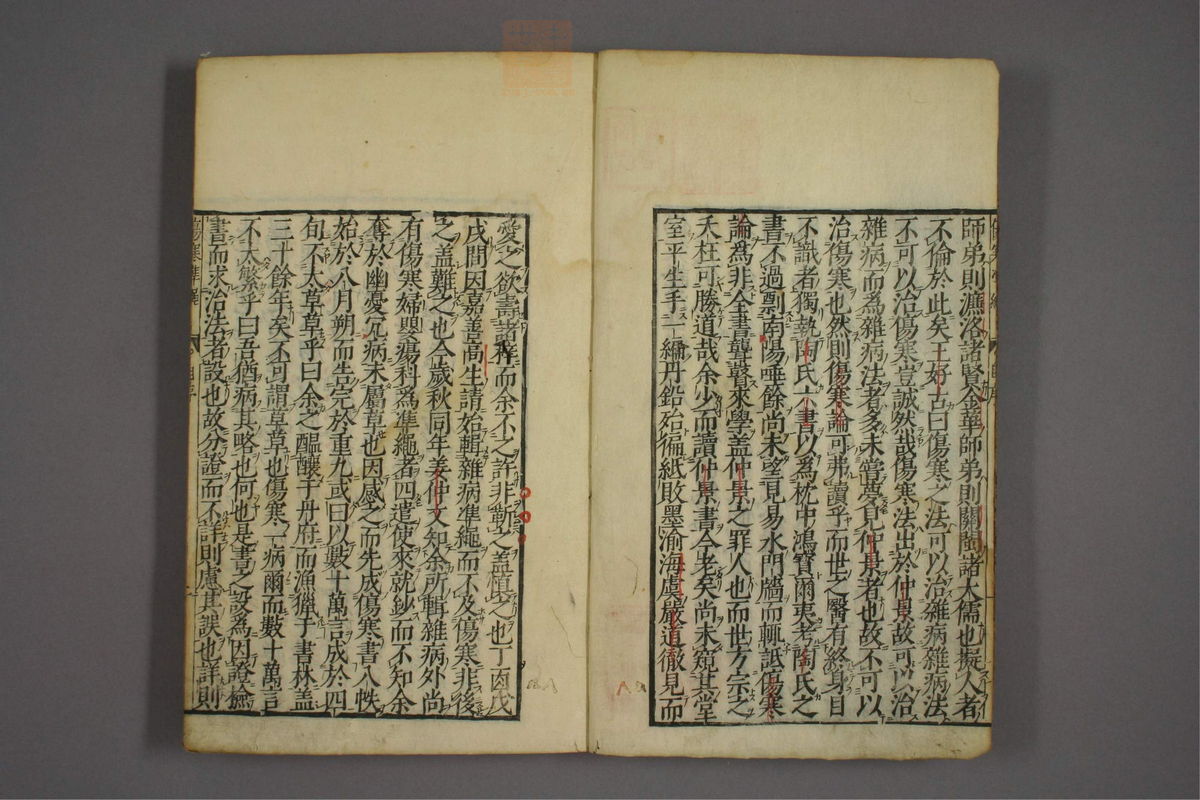 師弟則濂洛諸賢金華師弟則關閩諸大儒也擬人者
不倫於此矣王好古曰傷寒之法可以治雜病雜病法
不可以治傷寒豈誠然哉傷寒法出於仲景故可以治
雜病而為雜病法者多未嘗夢見仲景者也故不可以
治傷寒也然則傷寒論可弗讀乎而世之醫有終身目
不識者獨執陶氏六書以為枕中鴻寶爾夷考陶氏之
書不過剽南陽唾餘尚未望見易水門牆而輒詆傷寒
論為非全書聾瞽來學蓋仲景之罪人也而世方宗之
夭枉可勝道哉余少而讀仲景書今老矣尚未窺其堂
室平生手一編丹鉛殆徧紙敗墨渝海虞嚴道徹見而
愛之欲壽諸梓而余不之許非靳之蓋慎之也丁酉戊
戌間因嘉善高生請始輯雜病準繩而不及傷寒非後
之蓋難之也今歲秋同年姜仲文知余所輯雜病外尚
有傷寒婦嬰瘍科為準繩者四遣使來就鈔而不知余
奪於幽憂冗病未屬草也因感之而先成傷寒書八帙
始於八月朔而告完於重九或曰以數十萬言成於四
旬不太草草乎曰余之醞釀于丹府而漁獵于書林蓋
三十餘年矣不可謂草草也傷寒一病爾而數十萬言
不太繁乎曰吾猶病其略也何也是書之設為因證檢
書而求治法者設也故分證而不詳則慮其誤也詳則